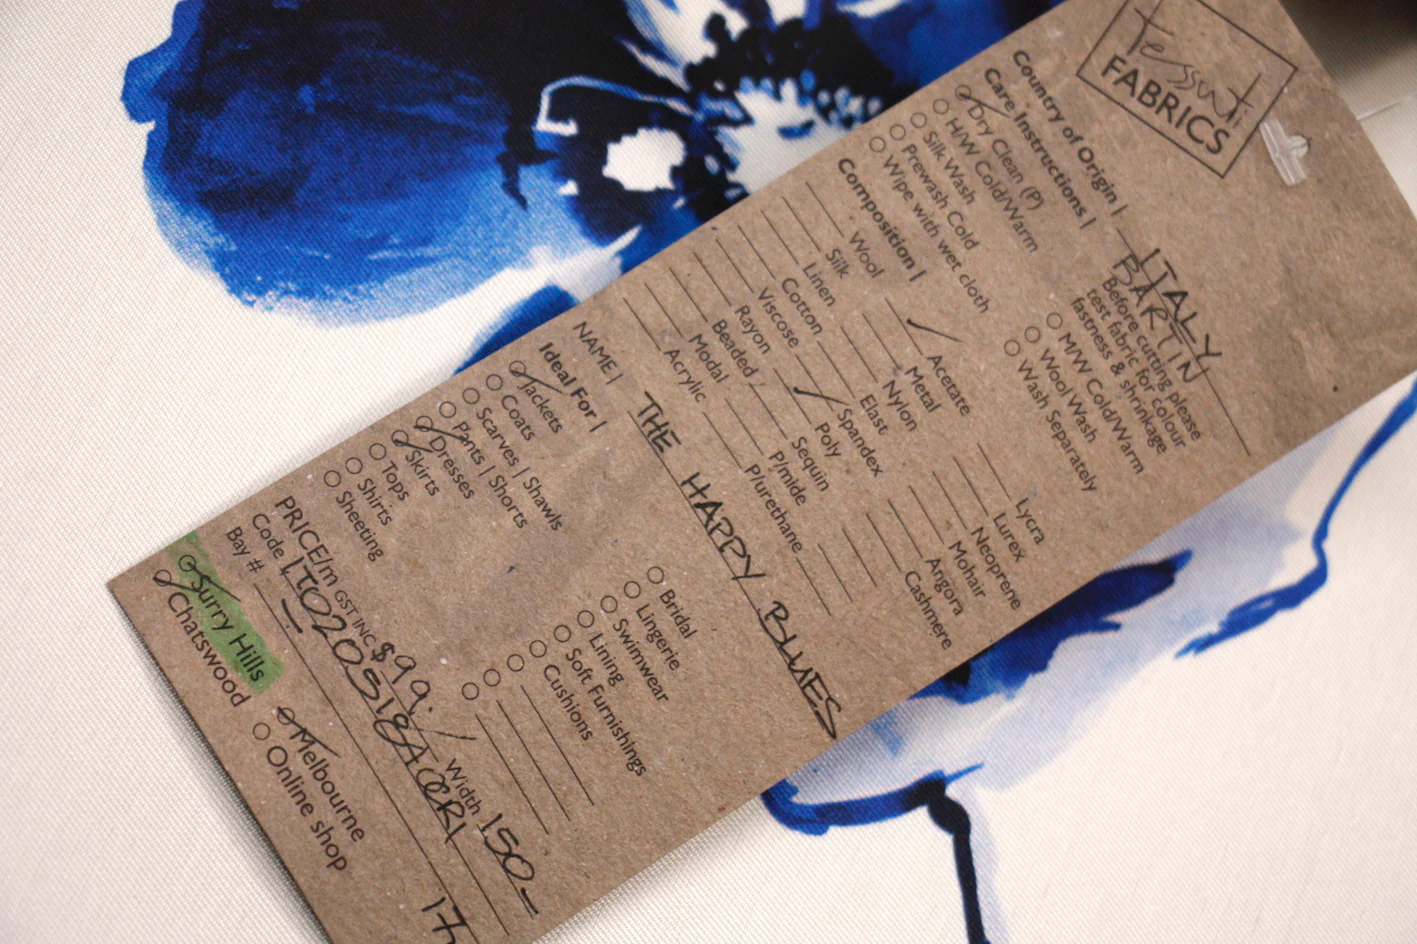 Tessuti
FABRICS
Country of Origin | ITALY
Care Instructions | BARTIN
Dry Clean (P)
H/W Cold/Warm
Silk Wash
Prewash Cold
Wipe with wet cloth
Before cutting please
test fabric for colour
fastness & shrinkage
M/W Cold/Warm
Wool Wash
Wash Separately
Composition |
Wool
Silk
Linen
Cotton
Viscose
Rayon
Beaded
Modal
Acrylic
Acetate
Metal
Nylon
Elast
Spandex
Poly
Sequin
P/mide
P/urethane
Lycra
Lurex
Neoprene
Mohair
Angora
Cashmere
NAME | THE HAPPY BLUES
Ideal For |
Jackets
Coats
Scarves | Shawls
Pants | Shorts
Dresses
Skirts
Tops
Shirts
Sheeting
Bridal
Lingerie
Swimwear
Lining
Soft Furnishings
Cushions
PRICE/m GST INC $99. Width 150-
Code
Bay # 17
Surry Hills
Chatswood
Melbourne
Online shop